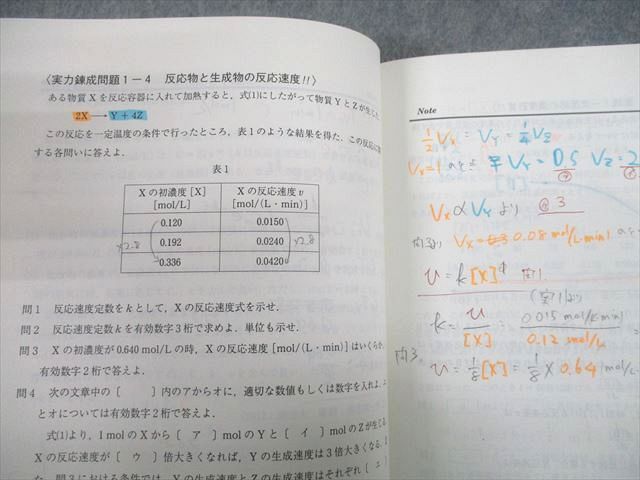 〈実力錬成問題1-4 反応物と生成物の反応速度!!〉
ある物質Xを反応容器に入れて加熱すると、式(1)にしたがって物質YとZが生じた。
2X → Y + 4Z
この反応を一定温度の条件で行ったところ、表1のような結果を得た。この反応に関
する各問いに答えよ。
表1
Xの初濃度[X] [mol/L] Xの反応速度v [mol/(L・min)]
0.120 0.0150
0.192 0.0240
0.336 0.0420
×2.8 ×2.8
問1 反応速度定数をkとして、Xの反応速度式を示せ。
問2 反応速度定数kを有効数字3桁で求めよ。単位も示せ。
問3 Xの初濃度が0.640 mol/Lの時、Xの反応速度[mol/(L・min)]はいくらか。
有効数字2桁で答えよ。
問4 次の文章中の〔 〕内のアからオに、適切な数値もしくは数字を入れよ。エ
とオについては有効数字2桁で答えよ。
式(1)より、1molのXから〔 ア 〕molのYと〔 イ 〕molのZが生じる
Xの反応速度が〔 ウ 〕倍大きくなれば、Yの生成速度は3倍大きくなる。
た、問3における条件では、Yの生成速度とZの生成速度はそれぞれ〔 エ
Note
1/2 Vx = VY = 1/4 Vz
Vx=1のとき VY = 0.5 Vz = 2
Vx ∝ VY より 3
問3より Vx = 0.08 mol/L・min
v = k[X]¹ 問1
k = v/[X] = 0.015 mol/L・min / 0.12 mol/L
問3. v = 1/8 [X] = 1/8 × 0.64